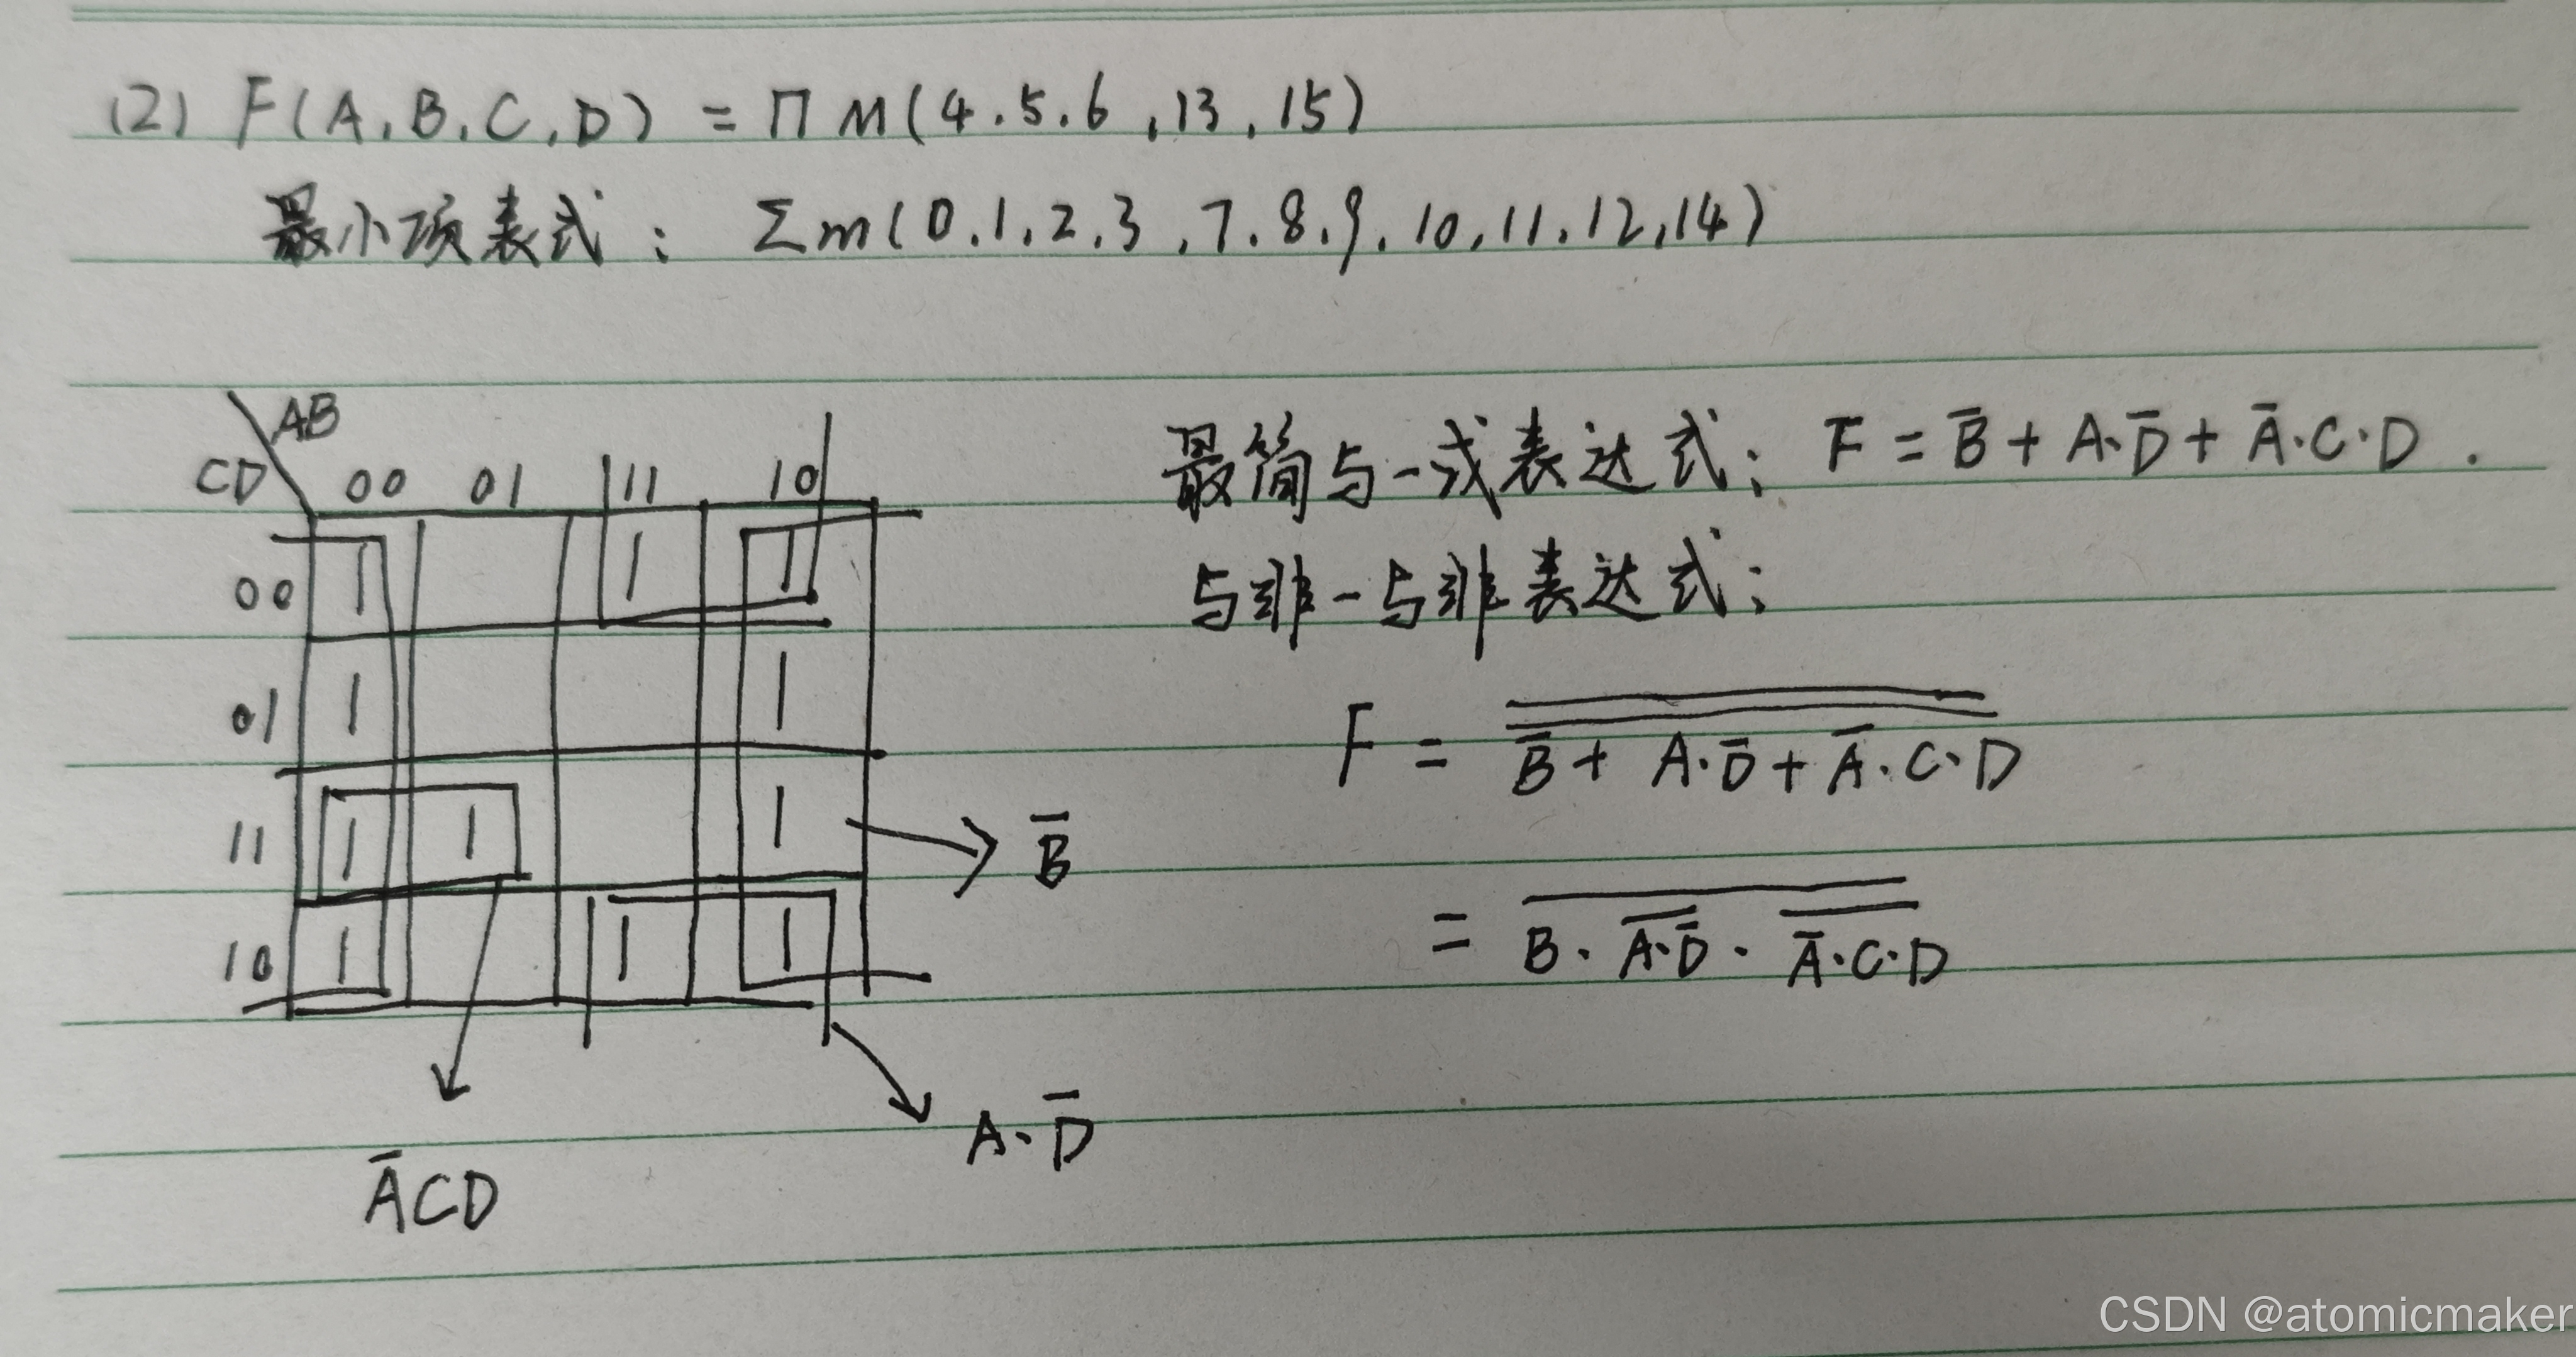 (2) F(A,B,C,D) = Π M(4.5.6,13,15)
最小项表式: Σm(0.1.2.3,7.8.9.10,11.12,14)
AB
CD 00 01 11 10
00 1 1 1
01 1 1
11 1 1 1
10 1 1 1
B̅
A̅CD
A·D̅
最简与-或表达式: F = B̅ + A·D̅ + A̅·C·D.
与非-与非表达式:
F = \overline{\overline{B̅ + A·D̅ + A̅·C·D}}
= \overline{B·\overline{A·D̅}·\overline{A̅·C·D}}
CSDN @atomicmaker